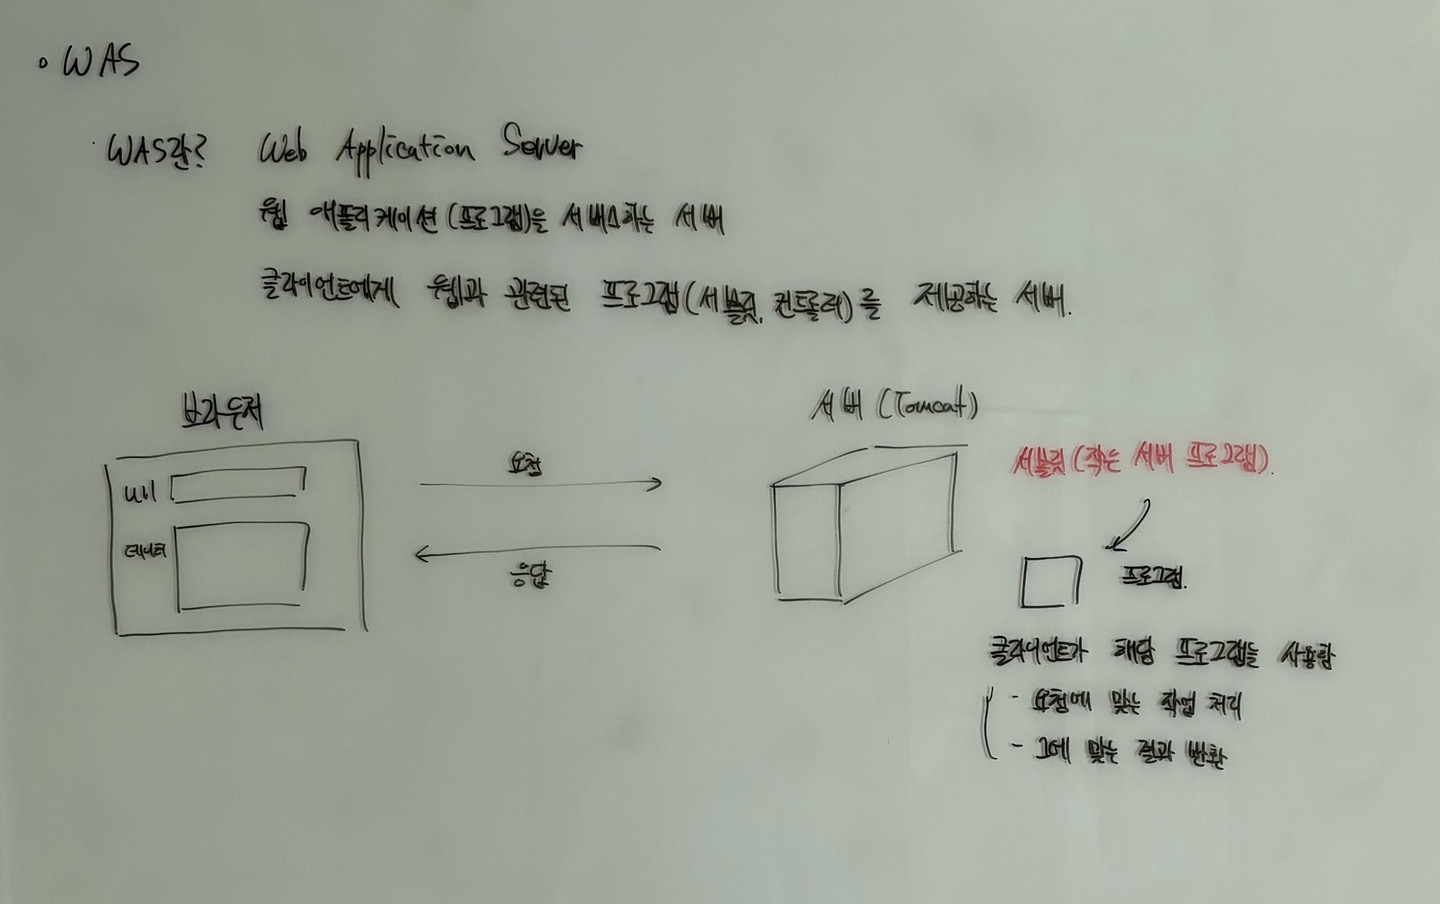 ◦ WAS
· WAS란? Web Application Server
웹 애플리케이션(프로그램)을 서비스하는 서버
클라이언트에게 웹과 관련된 프로그램(서블릿, 컨트롤러)를 제공하는 서버.
브라우저
서버 (Tomcat)
서블릿(작은 서버 프로그램).
요청
url
데이터
응답
프로그램.
클라이언트가 해당 프로그램을 사용함
- 요청에 맞는 작업 처리
- 그에 맞는 결과 반환